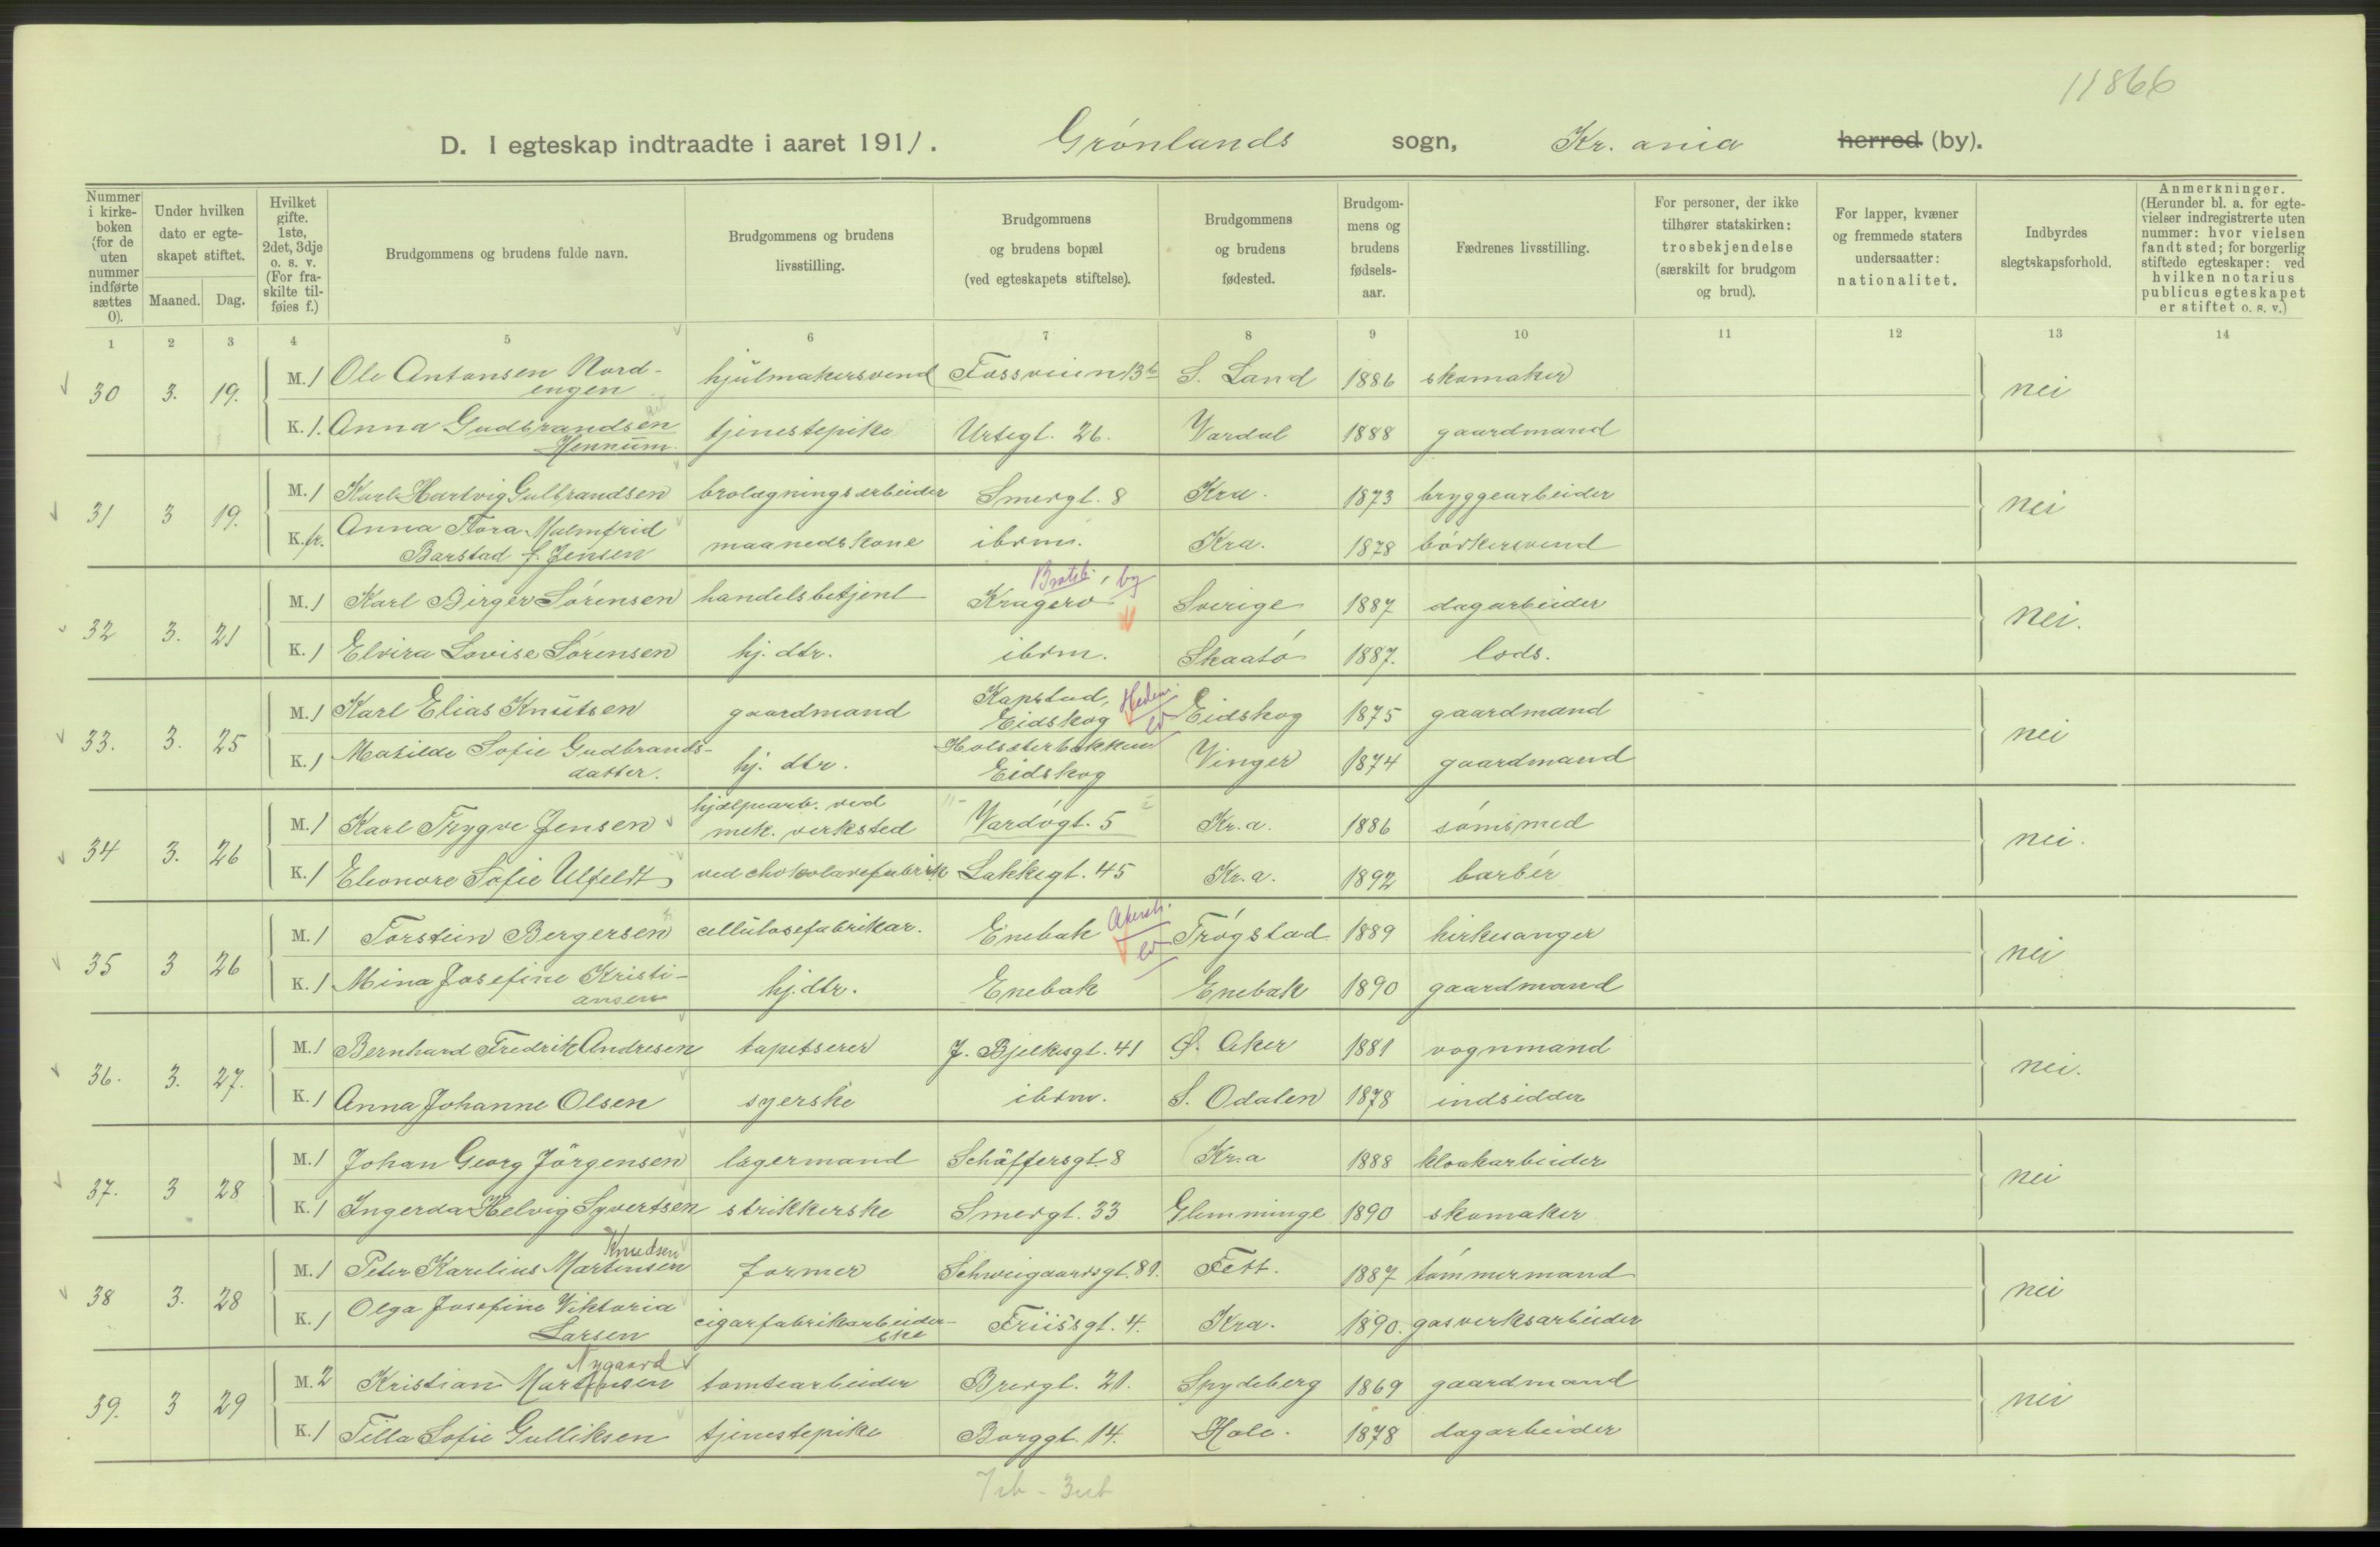 11866
D. I egteskap indtraadte i aaret 1911. Grönlands sogn, Kr.ania herred (by).
Nummer i kirke-boken (for de uten nummer indførte sættes 0).
Under hvilken dato er egte-skapet stiftet.
Maaned. Dag.
Hvilket gifte. 1ste, 2det, 3dje o. s. v. (For fra-skilte til-føies f.)
Brudgommens og brudens fulde navn.
Brudgommens og brudens livsstilling.
Brudgommens og brudens bopæl (ved egteskapets stiftelse).
Brudgommens og brudens fødested.
Brudgom-mens og brudens fødsels-aar.
Fædrenes livsstilling.
For personer, der ikke tilhører statskirken: trosbekjendelse (særskilt for brudgom og brud).
For lapper, kvæner og fremmede staters undersaatter: nationalitet.
Indbyrdes slegtskapsforhold.
Anmerkninger. (Herunder bl. a. for egte-vielser indregistrerte uten nummer: hvor vielsen fandt sted; for borgerlig stiftede egteskaper: ved hvilken notarius publicus egteskapet er stiftet o. s. v.)
1 2 3 4 5 6 7 8 9 10 11 12 13 14
30 3. 19. M. 1 Ole Antonsen Nord-engen hjulmakersvend Fossveien 13b S. Land 1886 skomaker nei
K. 1. Anna Gudbrandsen Hennum tjenestepike Urtegt. 26. Vardal 1888 gaardmand
31 3 19. M. 1 Karl Hartvig Gulbrandsen brolægningsarbeider Smedgt. 8 Kra. 1873 bryggearbeider nei
K. fr. Anna Thora Malmfrid Barstad f. Jensen maanedskone ibdm. Kra. 1878 bödkersvend
32 3. 21 M. 1 Karl Birger Sörensen handelsbetjent Kragerö Bratsb. by Sverige 1887 dagarbeider nei.
K. 1 Elvira Lovise Sörensen hj. dtr. ibdm. Skaatö 1887. lods.
33. 3. 25 M. 1 Karl Elias Knutsen gaardmand Kapstad, Eidskog Hedm. ld Eidskog 1875 gaardmand nei
K. 1 Matilde Sofie Gudbrands-datter. hj. dtr. Holsterbakken Eidskog Vinger 1874 gaardmand
34 3. 26 M. 1 Karl Trygve Jensen hjælpearb. ved mek. verksted Vardögt. 5 Kr.a. 1886 sömsmed nei.
K. 1 Eleonore Sofie Ulfeldt ved chokoladefabrik Lakkegt. 45 Kr.a. 1892 barbér
35 3 26 M. 1 Torstein Bergersen cellulosefabrikar. Enebak Akersh. ld Trögstad 1889 kirkesanger nei
K. 1 Mina Josefine Kristi-ansen hj. dtr. Enebak Enebak 1890 gaardmand
36. 3. 27. M. 1 Bernhard Fredrik Andresen tapetserer J. Bjelkesgt. 41 Ø. Aker 1881 vognmand nei.
K. 1 Anna Johanne Olsen syerske ibdm. S. Odalen 1878 indsidder
37. 3 28 M. 1 Johan Georg Jörgensen lagermand Schäffersgt. 8 Kr.a 1888 kloakarbeider nei
K. 1 Ingerda Helvig Syvertsen strikkerske Smedgt. 33 Glemminge 1890 skomaker
38 3. 28 M. 1 Peter Karelius Martinsen Knudsen former Schweigaardsgt. 81. Fett. 1887 tömmermand nei
K. 1 Olga Josefine Viktoria Larsen cigarfabrikarbeider-ske Friisgt. 4. Kra. 1890. gasverksarbeider
39. 3 29 M. 2 Kristian Martinsen Nygaard tomtearbeider Bredgt. 21. Spydeberg 1869 gaardmand nei
K. 1 Tilla Sofie Gulliksen tjenestepike Borggt. 14. Hole. 1878 dagarbeider